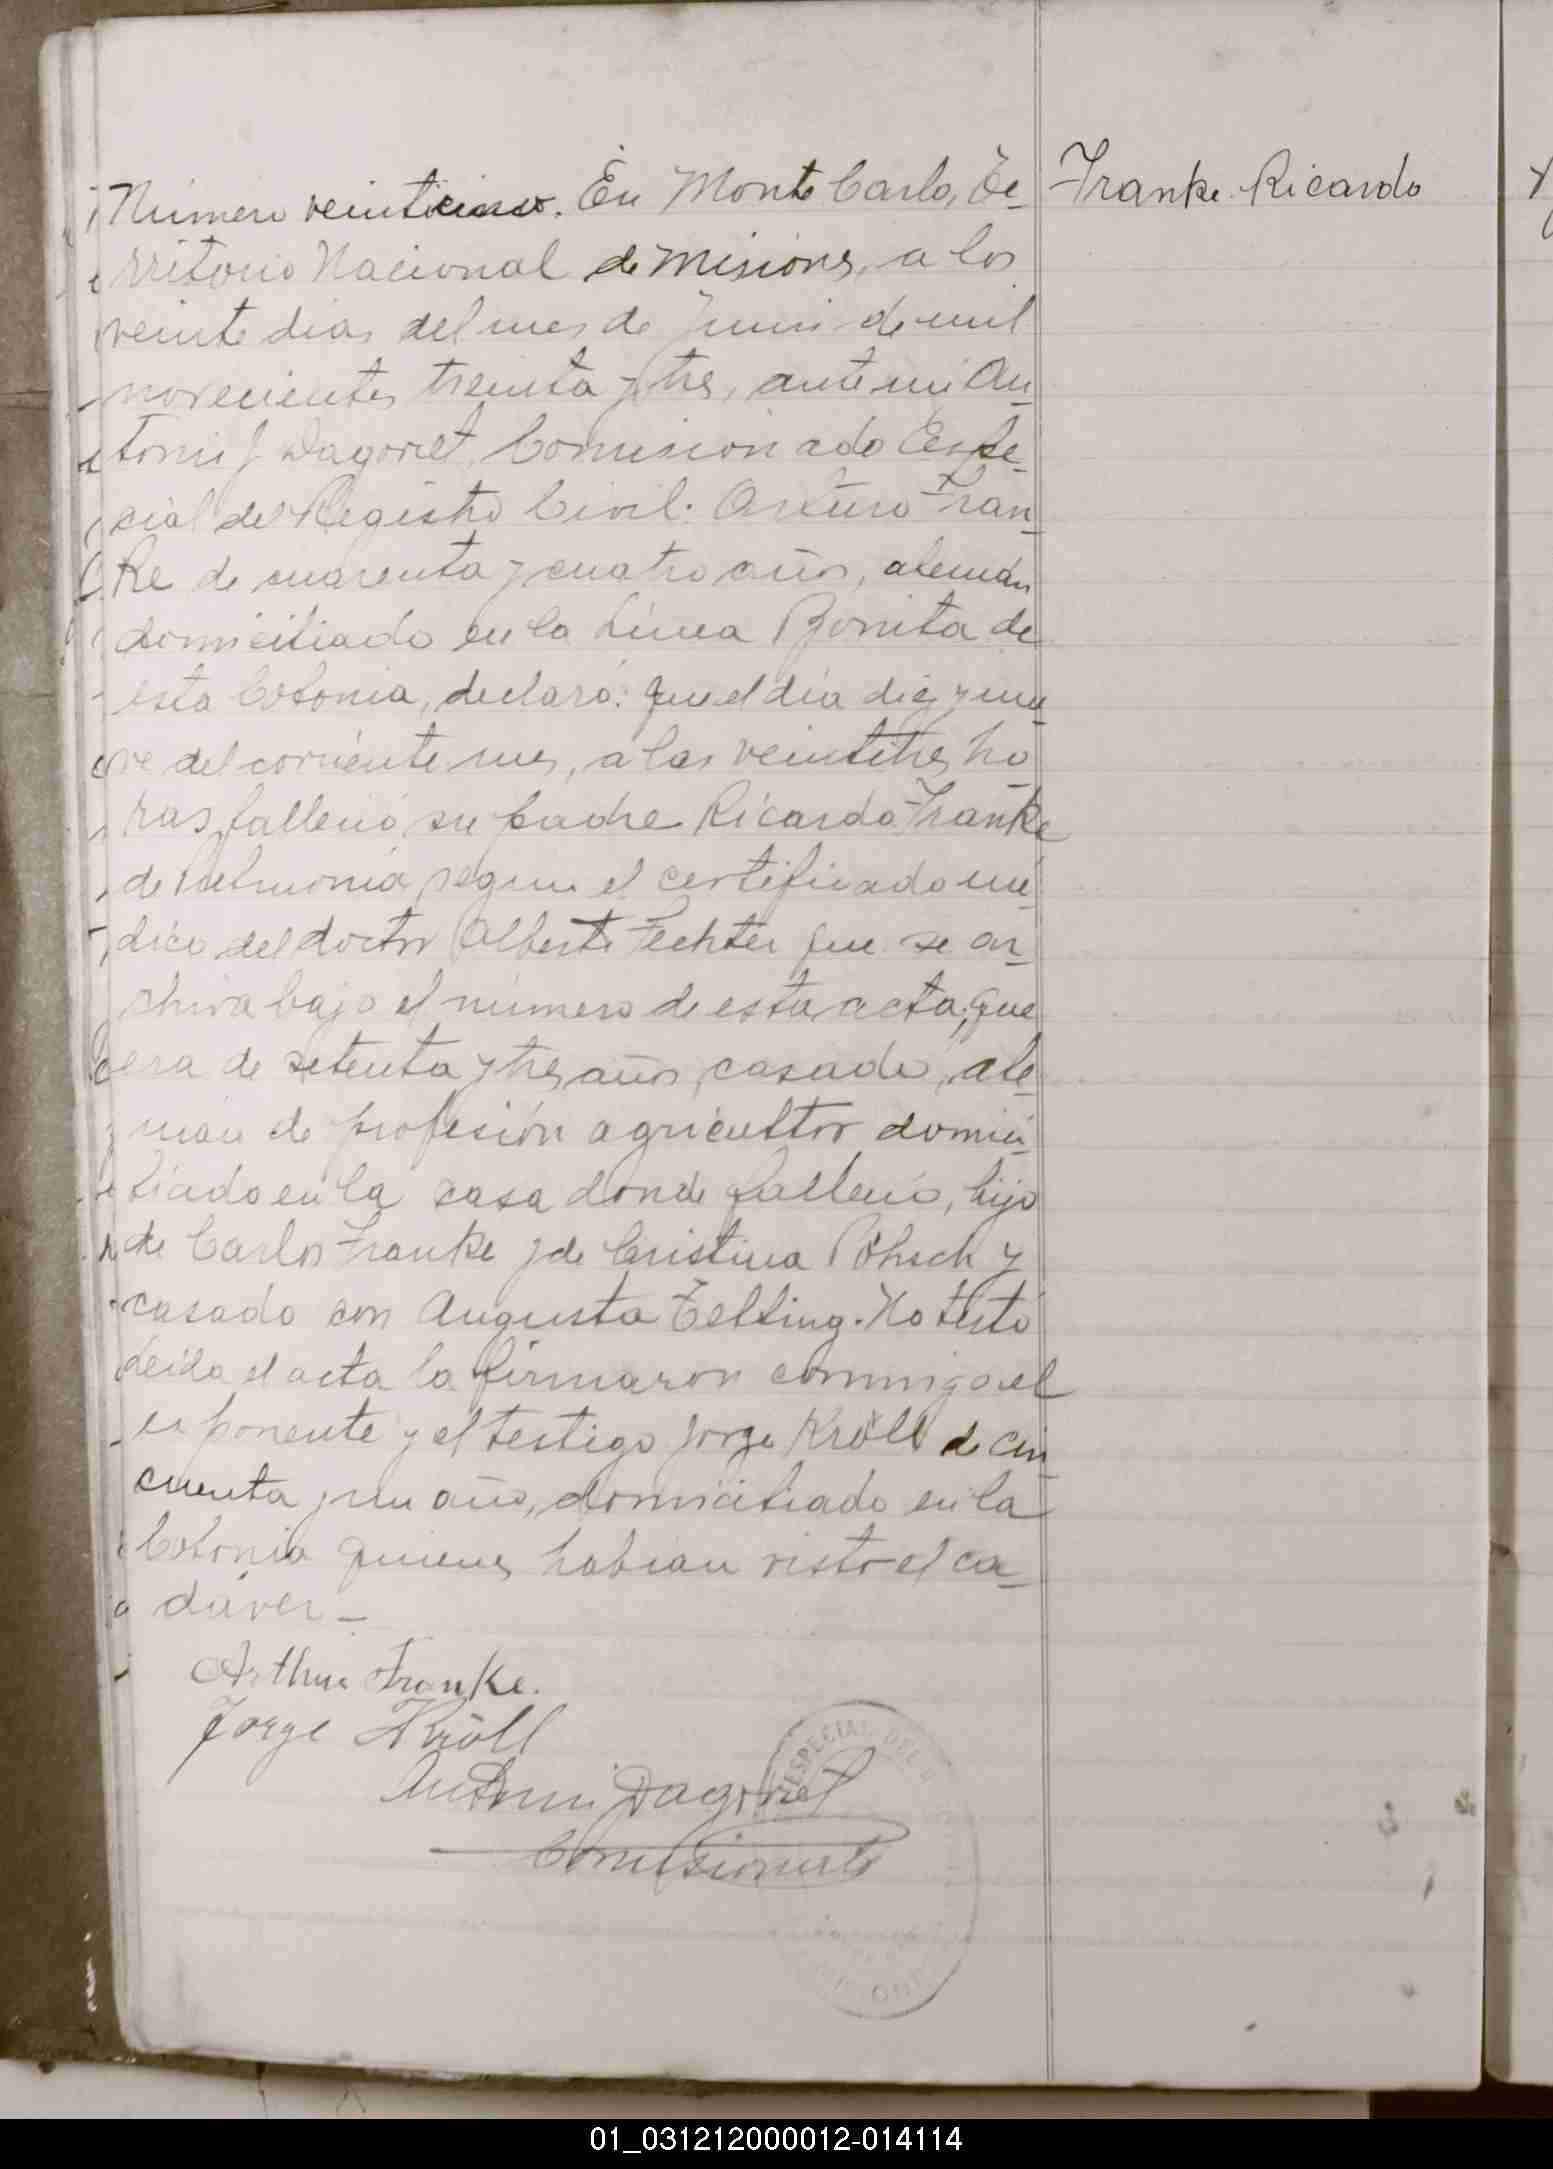 Número veinticinco. En Monte Carlo, Te-
rritorio Nacional de Misiones, a los
veinte dias del mes de Junio de mil
novecientos treinta y tres, ante mi An-
tonio J Dagorret, Comisionado Espe-
cial del Registro Civil: Arturo Fran-
ke de cuarenta y cuatro años, alemán
domiciliado en la Línea Bonita de
esta Colonia, declaró: Que el día diez y nue-
ve del corriente mes, a las veintitres ho-
ras, falleció su padre Ricardo Franke
de Pulmonía según el certificado mé-
dico del doctor Alberto Fechter que se ar-
chiva bajo el número de esta acta; que
era de setenta y tres años, casado, ale-
mán de profesión agricultor domici-
liado en la casa donde falleció, hijo
de Carlos Franke y de Cristina Pöhsch y
casado con Augusta Telting. No testó
Leida el acta la firmaron conmigo el
exponente y el testigo Jorge Kröll de cin-
cuenta y un año, domiciliado en la
Colonia quienes habian visto el ca-
dáver—
Arthur Franke.
Jorge Kröll
Antonio Dagorret
Comisionado
ESPECIAL DEL
Franke Ricardo
01_031212000012-014114